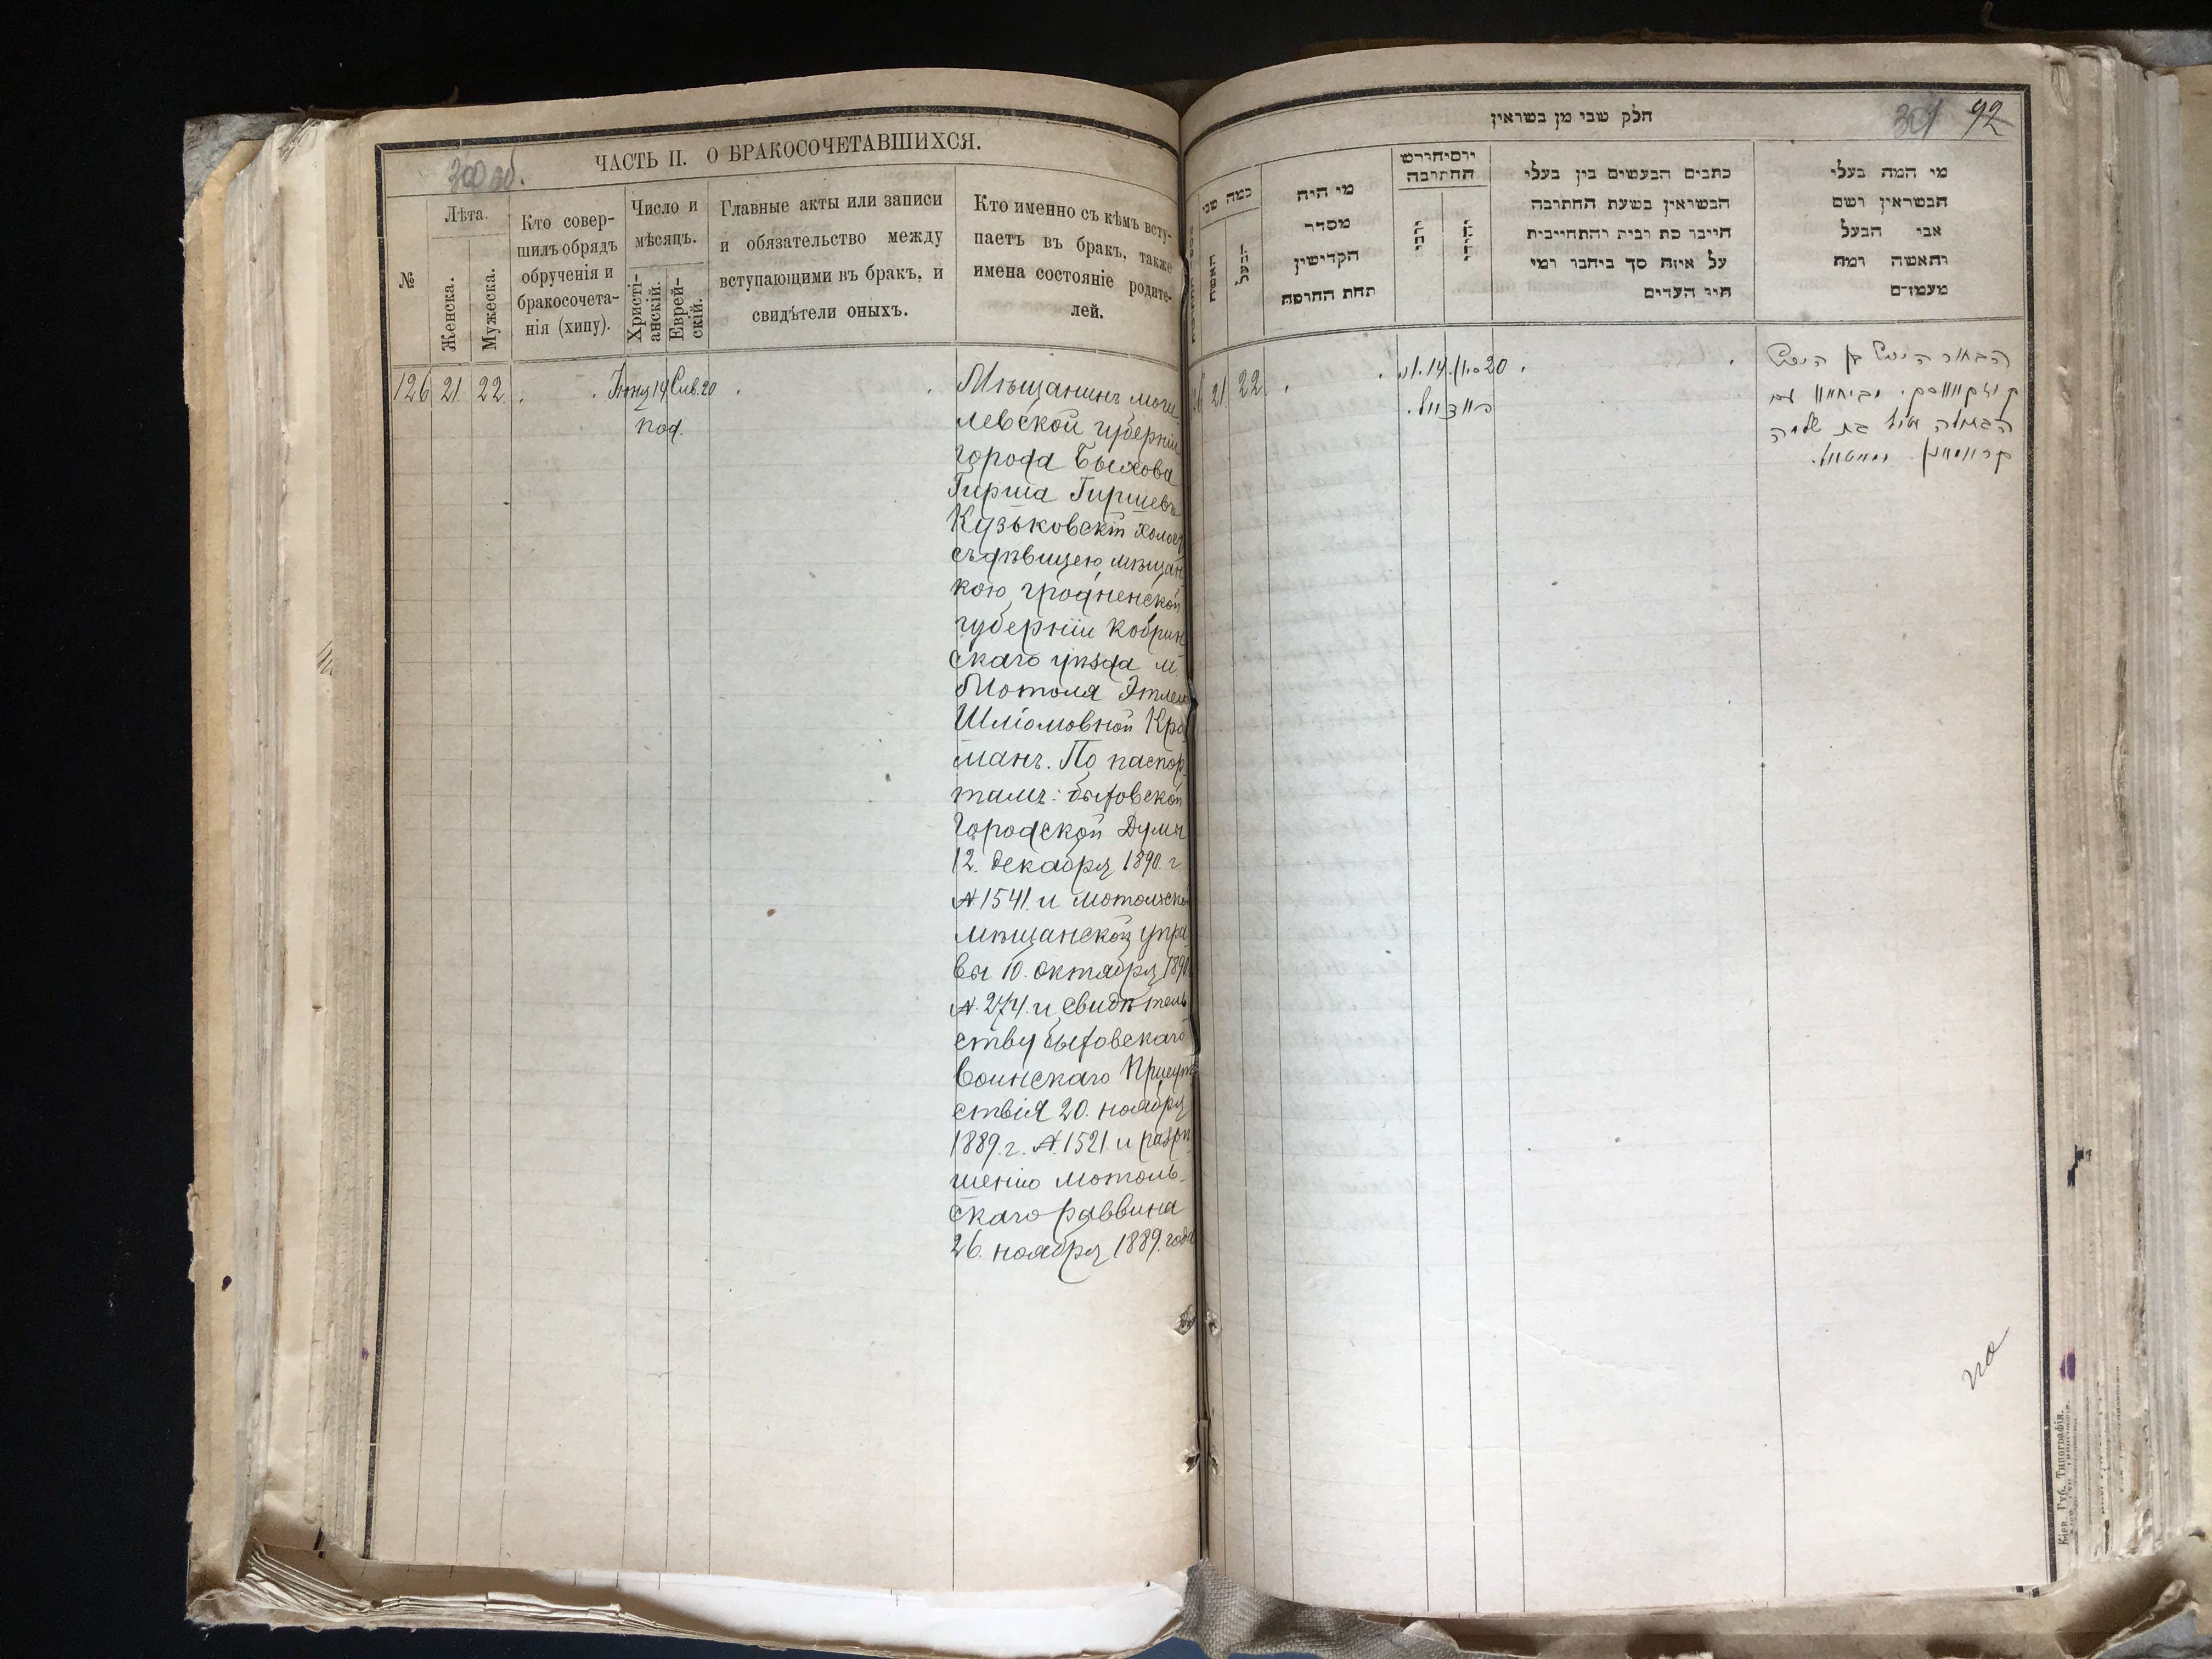 300 об.
ЧАСТЬ II. О БРАКОСОЧЕТАВШИХСЯ.
№
Лѣта.
Женска.
Мужеска.
Кто совер-
шилъ обрядъ
обрученія и
бракосочета-
нія (хипу).
Число и
мѣсяцъ.
Христі-
анскій.
Еврей-
скій.
Главные акты или записи
и обязательство между
вступающими въ бракъ, и
свидѣтели оныхъ.
Кто именно съ кѣмъ всту-
паетъ въ бракъ, также
имена состояніе родите-
лей.
126 21 22 Іюня 14 Сив. 20
под.
Мѣщанинъ моги
левской губерніи
города Быхова
Гирша Гиршевъ
Кузьковскій холост
съ дѣвицею мѣщан
кою гродненской
губерніи Кобрин
скаго уѣзда м.
Мотоля Этлею
Шліомовной Кро
манъ. По паспор
тамъ: быховской
Городской Думы
12. декабря 1890. г
№ 1541. и мотольской
мѣщанской упра
вы 10. октября 1890
№ 274. и свидѣтель
ству быховскаго
воинскаго Присут
ствія 20. ноября
1889. г. № 1521. и разрѣ
шенію мотоль-
скаго раввина
26. ноября 1889. года
חלק שני מן בשואין
301 92
כמה שני
האשה
הבעל
מי היה
מסדר
הקדישין
תחת החופה
יום וחודש
החתונה
כתבים הנעשים בין בעלי
הנשואין בשעת החתונה
חייבו כת ובית והתחייבית
על איזה סך ביחבו ומי
חיו העדים
מי המה בעלי
הנשואין ושם
אבי הבעל
והאשה ומה
מעמדם
21 22 14 20
הבחור הירש בן הירש
עם
הבתולה עטיל בת שלמה
Кіев. Губ. Типографія.